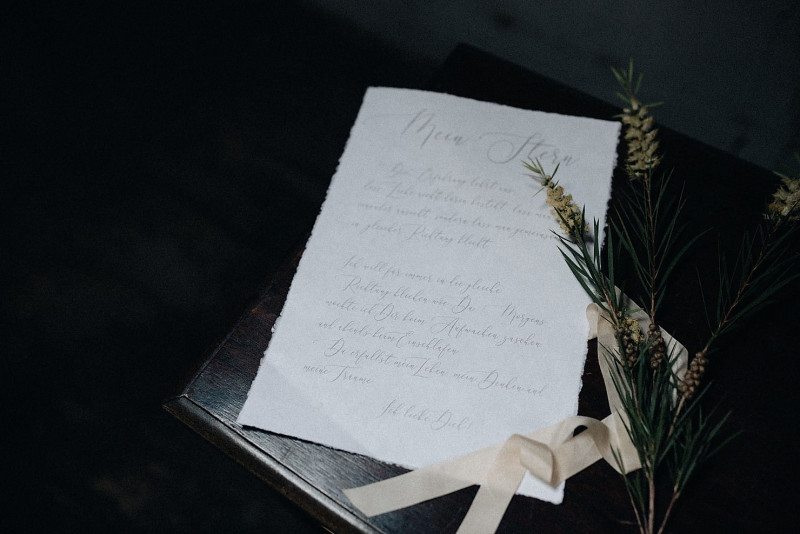 Mein Stern
Die Erfahrung lehrt uns,
dass Liebe nicht darin besteht, dass man
einander ansieht, sondern dass man gemeinsam
in gleicher Richtung blickt.
Ich will für immer in die gleiche
Richtung blicken wie Du. Morgens
möchte ich Dir beim Aufwachen zusehen
und abends beim Einschlafen.
Du erfüllst mein Leben, mein Denken und
meine Träume.
Ich liebe Dich!